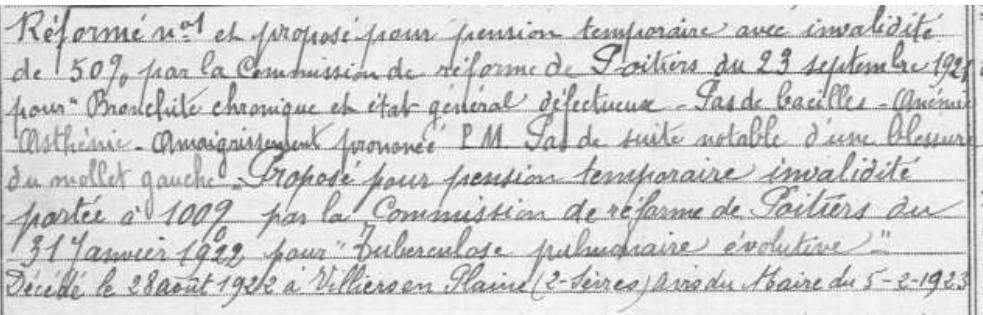 Réformé n°1 et proposé pour pension temporaire avec invalidité
de 50% par la Commission de réforme de Poitiers du 23 septembre 1921
pour "Bronchite chronique et état général défectueux - Pas de bacilles - Anémie
Asthénie - Amaigrissement prononcé P.M. Pas de suite notable d'une blessure
du mollet gauche - Proposé pour pension temporaire invalidité
portée à 100% par la Commission de réforme de Poitiers du
31 Janvier 1922 pour "Tuberculose pulmonaire évolutive"
Décédé le 28 août 1922 à Villiers en Plaine (2-Sèvres) avis du Maire du 5-2-1923